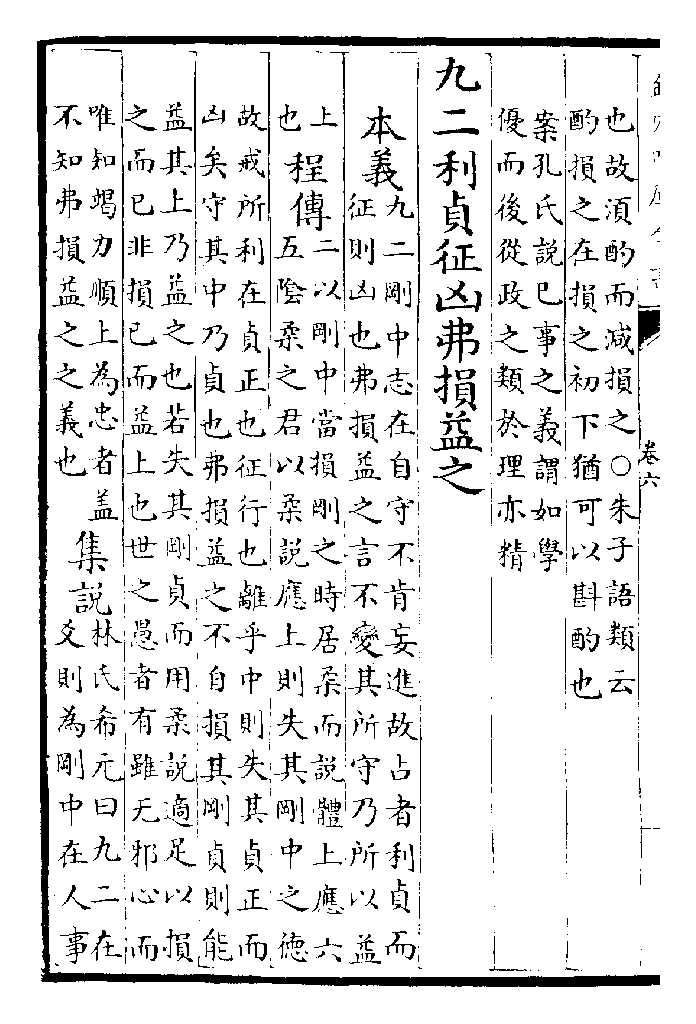 也故須酌而減損之〇朱子語類云
酌損之在損之初下猶可以斟酌也
案孔氏説巳事之義謂如學
優而後從政之類於理亦精
九二利貞征凶弗損益之
本義九二剛中志在自守不肯妄進故占者利貞而
征則凶也弗損益之言不變其所守乃所以益
上程傳二以剛中當損剛之時居柔而説體上應六
也五陰柔之君以柔説應上則失其剛中之德
故戒所利在貞正也征行也離乎中則失其貞正而
凶矣守其中乃貞也弗損益之不自損其剛貞則能
益其上乃益之也若失其剛貞而用柔説適足以損
之而已非損已而益上也世之愚者有雖无邪心而
唯知竭力順上為忠者盖集説林氏希元曰九二在
不知弗損益之之義也爻則為剛中在人事
卷六